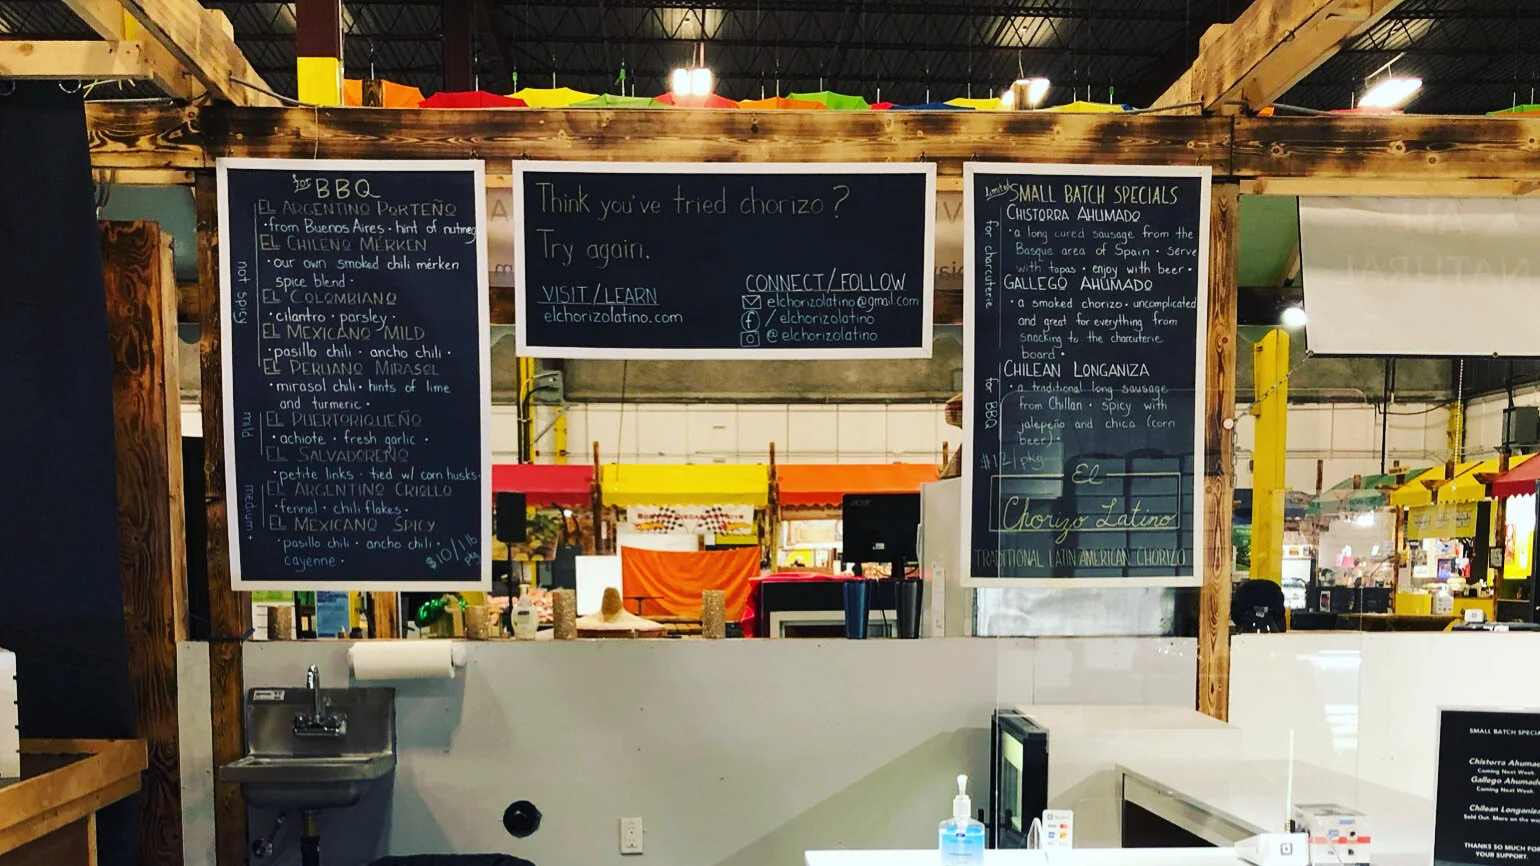 for BBQ
EL ARGENTINO PORTEÑO
• from Buenos Aires • hint of nutmeg
EL CHILENO MÉRKEN
• our own smoked chili mérken
spice blend •
EL COLOMBIANO
• cilantro • parsley •
EL MEXICANO MILD
• pasillo chili • ancho chili •
EL PERUANO MIRASOL
• mirasol chili • hints of lime
and turmeric •
not spicy
EL PUERTORIQUEÑO
• achiote • fresh garlic •
EL SALVADOREÑO
• petite links • tied w/ corn husks •
mild
EL ARGENTINO CRIOLLO
• fennel • chili flakes •
EL MEXICANO SPICY
• pasillo chili • ancho chili •
cayenne •
medium+
$10/1lb
pkg
Think you've tried chorizo?
Try again.
VISIT/LEARN
elchorizolatino.com
CONNECT/FOLLOW
elchorizolatino@gmail.com
f /elchorizolatino
@elchorizolatino
limited SMALL BATCH SPECIALS
CHISTORRA AHUMADO
• a long cured sausage from the
Basque area of Spain • serve
with tapas • enjoy with beer •
GALLEGO AHUMADO
• a smoked chorizo • uncomplicated
and great for everything from
snacking to the charcuterie
board •
for charcuterie
CHILEAN LONGANIZA
• a traditional long sausage
from Chillan • spicy with
jalepeño and chica (corn
beer) •
for BBQ
$12/pkg
El
Chorizo Latino
TRADITIONAL LATIN AMERICAN CHORIZO
acer
SMALL BATCH SPECIA
Chistorra Ahumad
Coming Next Week
Gallego Ahumado
Coming Next Week
Chilean Longaniza
Sold Out. More on the way
THANKS SO MUCH FOR
YOUR SUPPORT